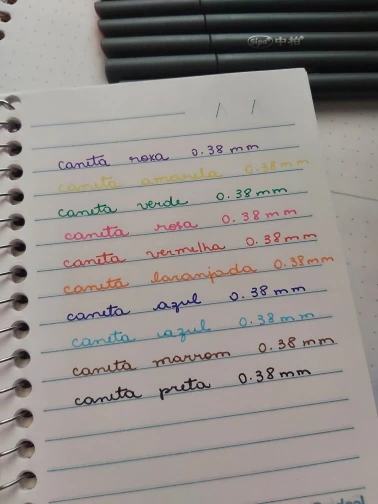 中柏
/ /
caneta roxa 0.38 mm
caneta amarela 0.38 mm
caneta verde 0.38 mm
caneta rosa 0.38 mm
caneta vermelha 0.38 mm
caneta laranjada 0.38 mm
caneta azul 0.38 mm
caneta azul 0.38 mm
caneta marrom 0.38 mm
caneta preta 0.38 mm